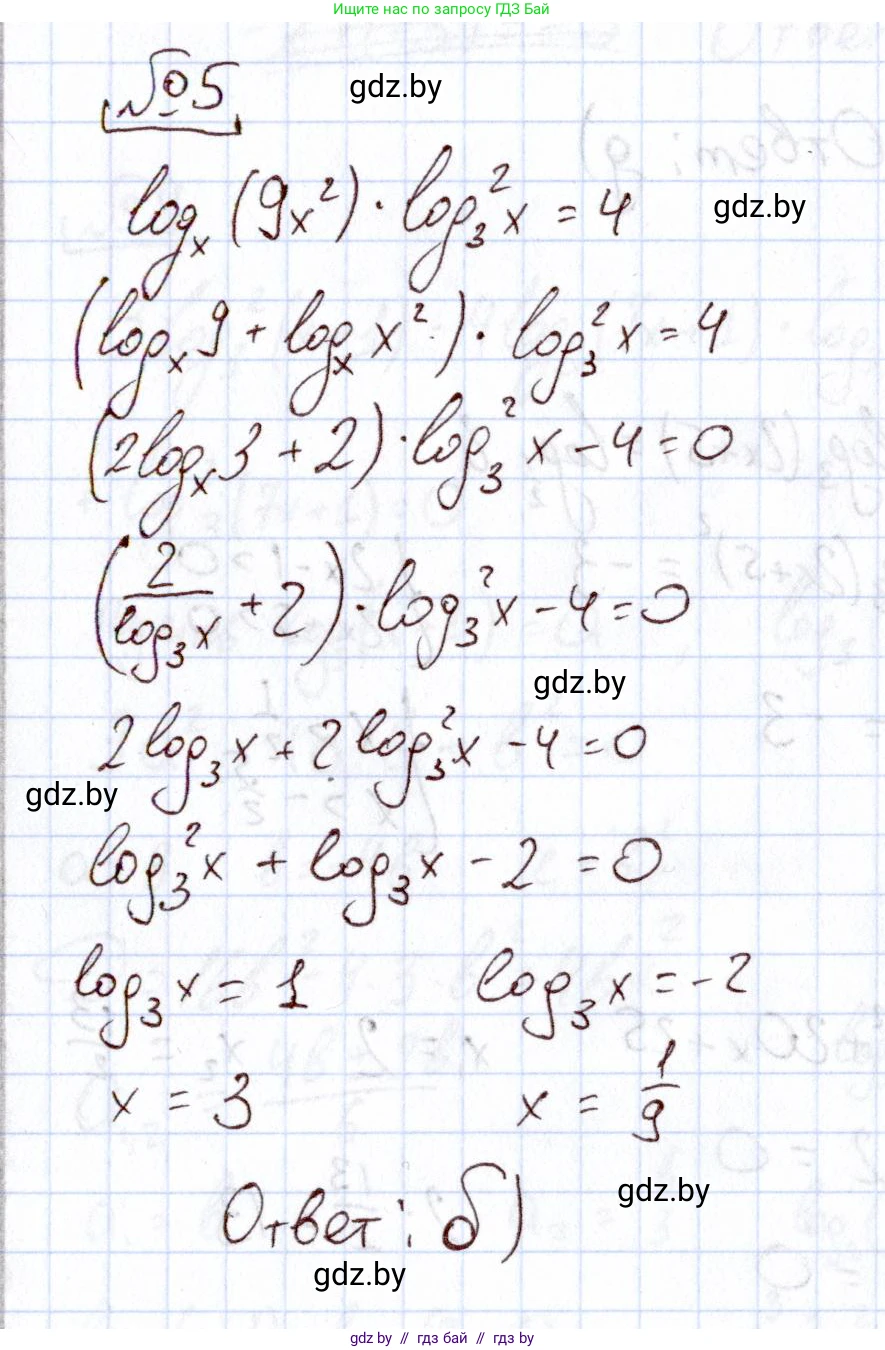 Ищите нас по запросу ГДЗ Бай
№5
gdz.by
logₓ(9x²) · log₃²x = 4
gdz.by
(logₓ9 + logₓx²) · log₃²x = 4
(2logₓ3 + 2) · log₃²x − 4 = 0
(2/log₃x + 2) · log₃²x − 4 = 0
gdz.by
2log₃x + 2log₃²x − 4 = 0
gdz.by
log₃²x + log₃x − 2 = 0
log₃x = 1 log₃x = −2
x = 3 x = 1/9
gdz.by
Ответ: б)
gdz.by
gdz.by // гдз бай // гдз by